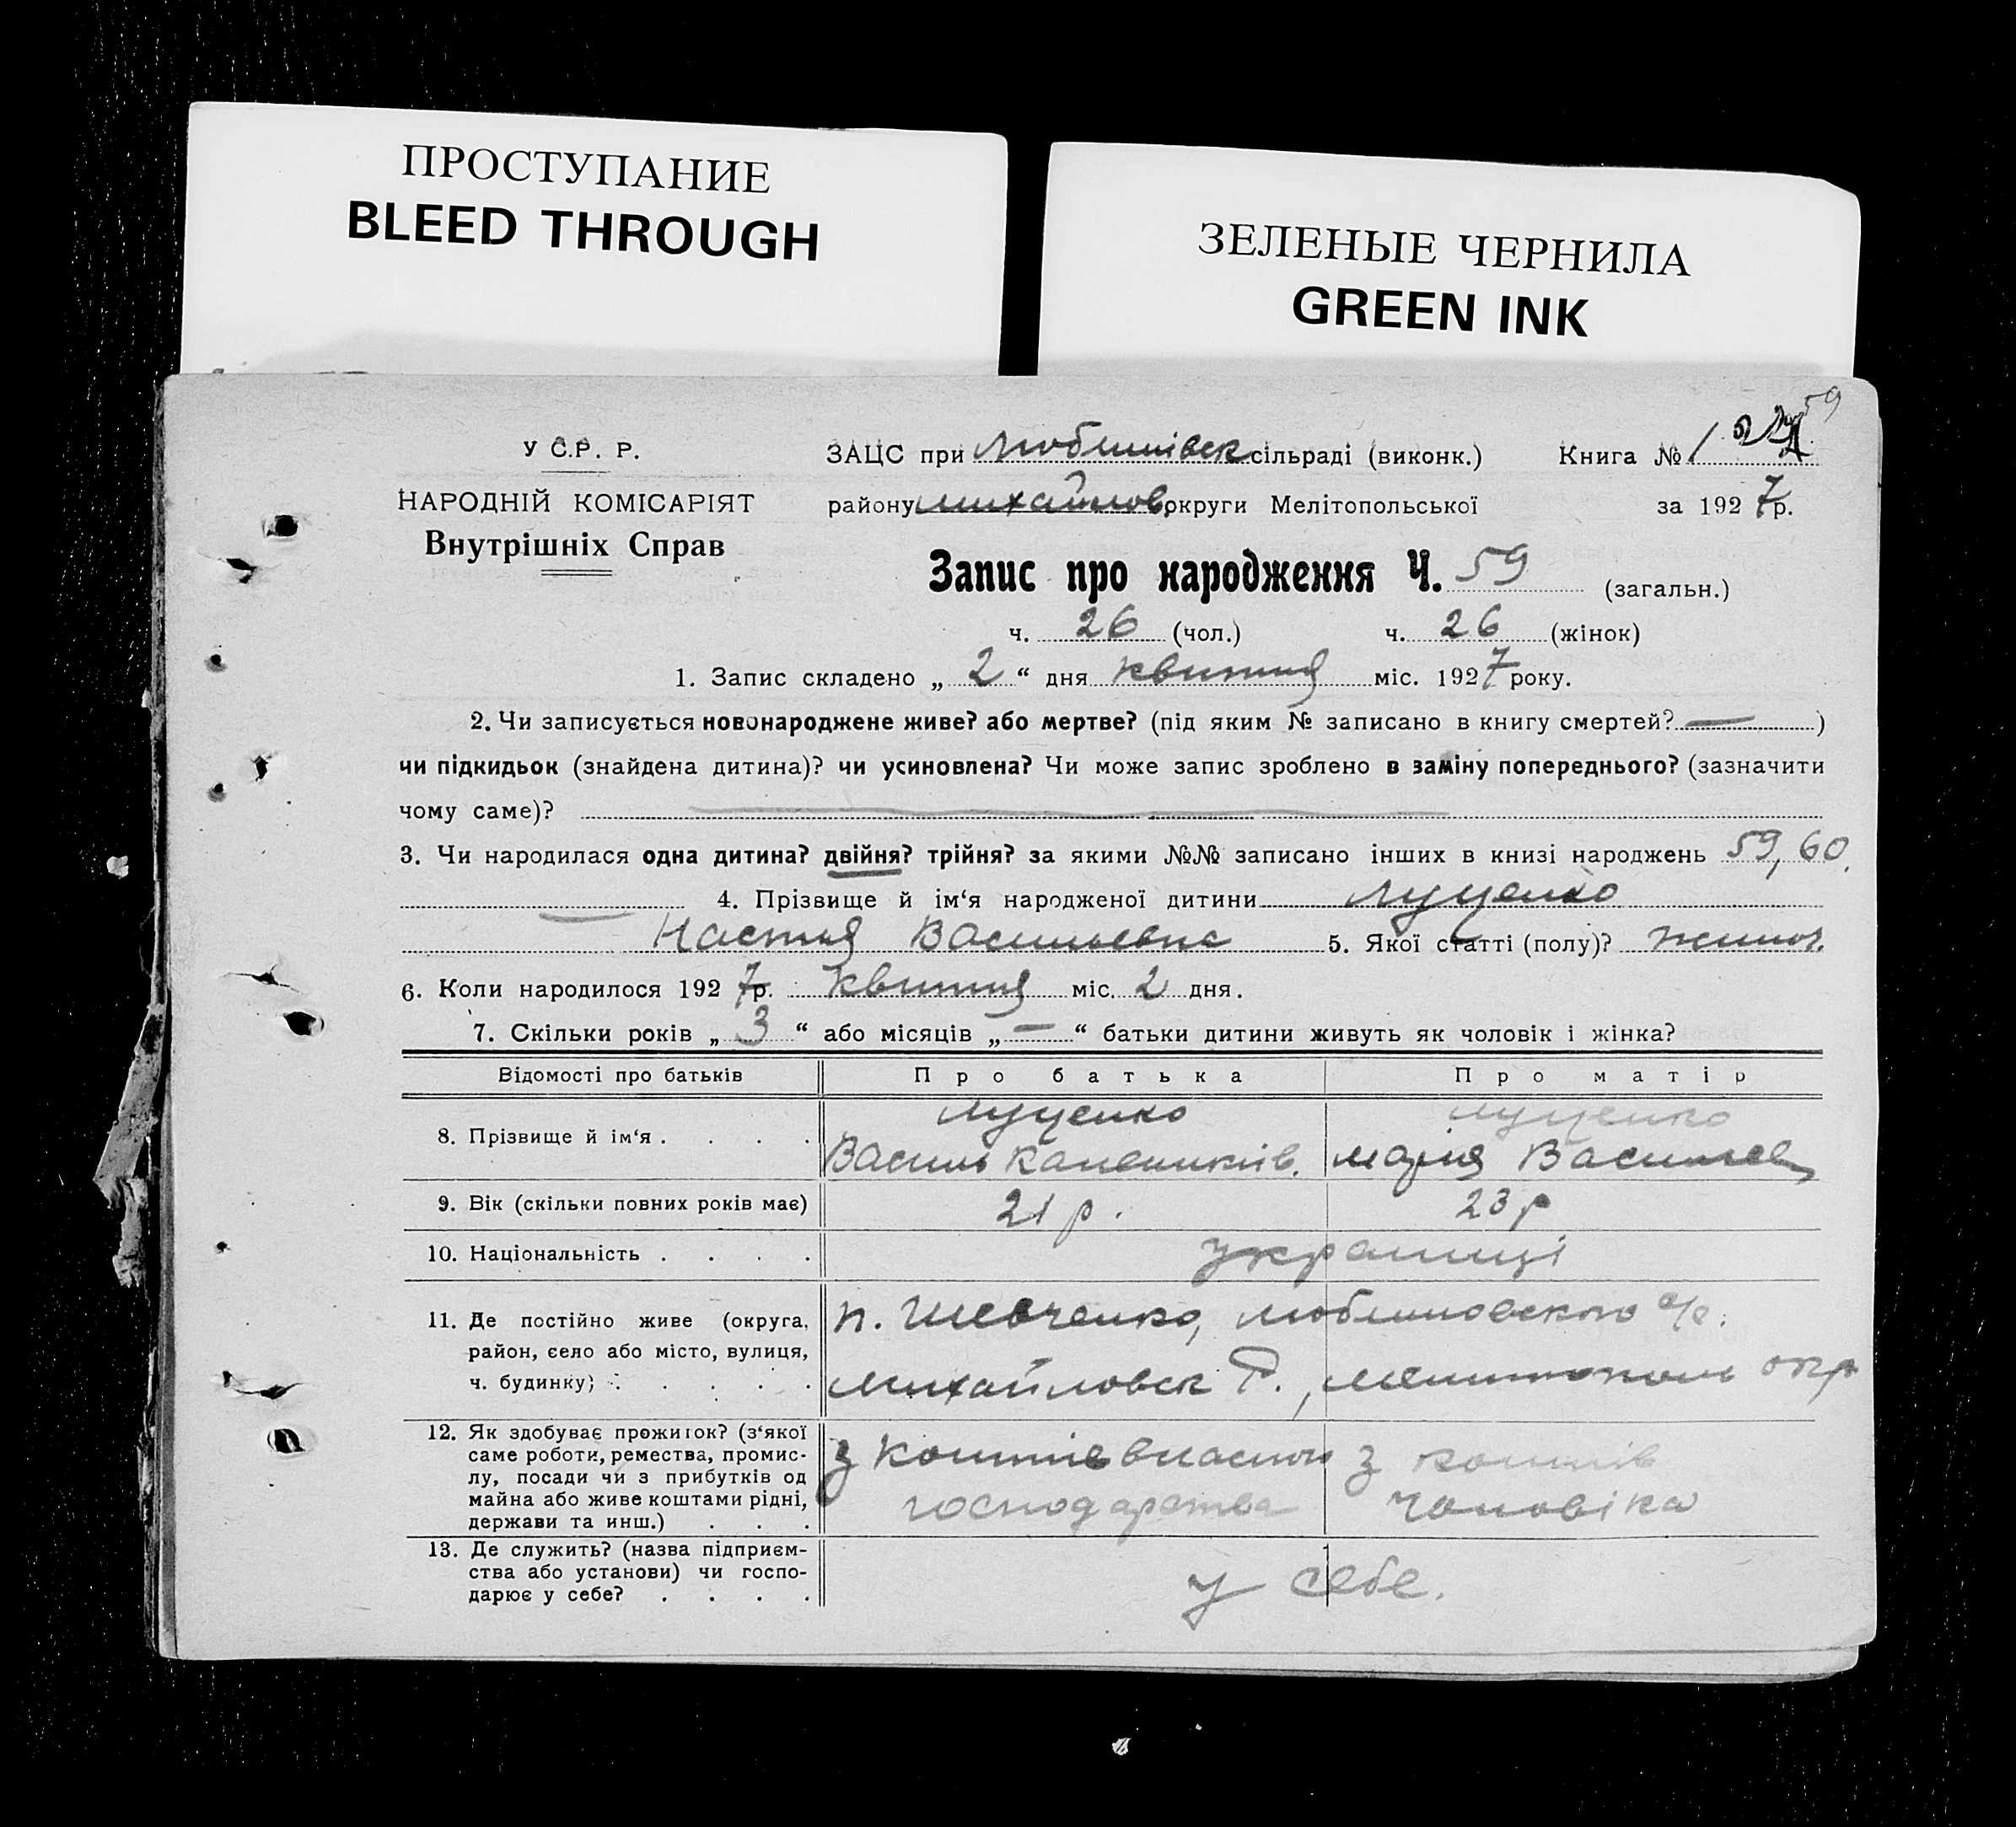 ПРОСТУПАНИЕ
BLEED THROUGH
ЗЕЛЕНЫЕ ЧЕРНИЛА
GREEN INK
59
У С.Р. Р.
НАРОДНІЙ КОМІСАРІЯТ
Внутрішніх Справ
ЗАЦС при Любимівск сільраді (виконк.) Книга № 1
району Михайлов. округи Мелітопольської за 1927 р.
Запис про народження Ч. 59 (загальн.)
ч. 26 (чол.) ч. 26 (жінок)
1. Запис складено „ 2 “ дня квитня міс. 1927 року.
2. Чи записується новонароджене живе? або мертве? (під яким № записано в книгу смертей? — )
чи підкидьок (знайдена дитина)? чи усиновлена? Чи може запис зроблено в заміну попереднього? (зазначити
чому саме)?
3. Чи народилася одна дитина? двійня? трійня? за якими №№ записано інших в книзі народжень 59, 60.
— 4. Прізвище й ім‘я народженої дитини Луценко
Настя Васильевна 5. Якої статті (полу)? жиноч.
6. Коли народилося 1927 р. квитня міс. 2 дня.
7. Скільки років „ 3 “ або місяців „ — “ батьки дитини живуть як чоловік і жінка?
Відомості про батьків Про батька Про матір
8. Прізвище й ім‘я . . . . Луценко Луценко
Василь Мария Васильев
9. Вік (скільки повних років має) 21 р. 23 р
10. Національність . . . . украинці
11. Де постійно живе (округа, район, село або місто, вулиця, ч. будинку) . . . . .
п. Шевченко, Любимовского с/р.
Михайловск Р., Мелитополь окр
12. Як здобуває прожиток? (з‘якої
саме роботи, ремества, промис-
лу, посади чи з прибутків од
майна або живе коштами рідні,
держави та инш.) . . .
З коштів власного З коштів
господарства чоловіка
13. Де служить? (назва підприєм-
ства або установи) чи госпо-
дарює у себе? . . . .
у себе.